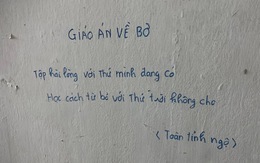 GIÁO ÁN VỀ BỜ
Tập hài lòng với thứ mình đang có
Học cách từ bỏ với thứ trời không cho
(Toàn tỉnh ngộ)